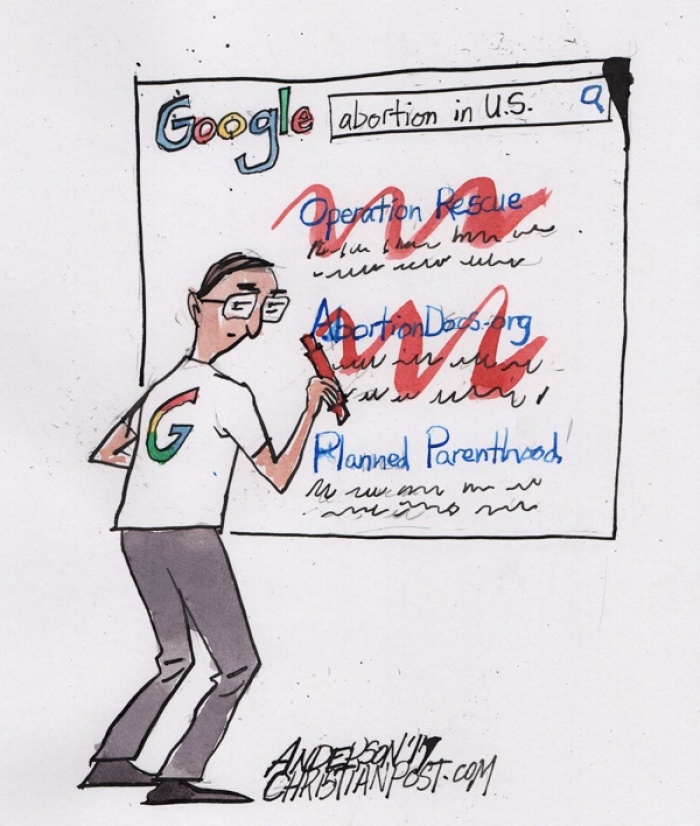 Google abortion in U.S.
Operation Rescue
AbortionDocs.org
Planned Parenthood
G
ANDERSON '17
CHRISTIANPOST.COM